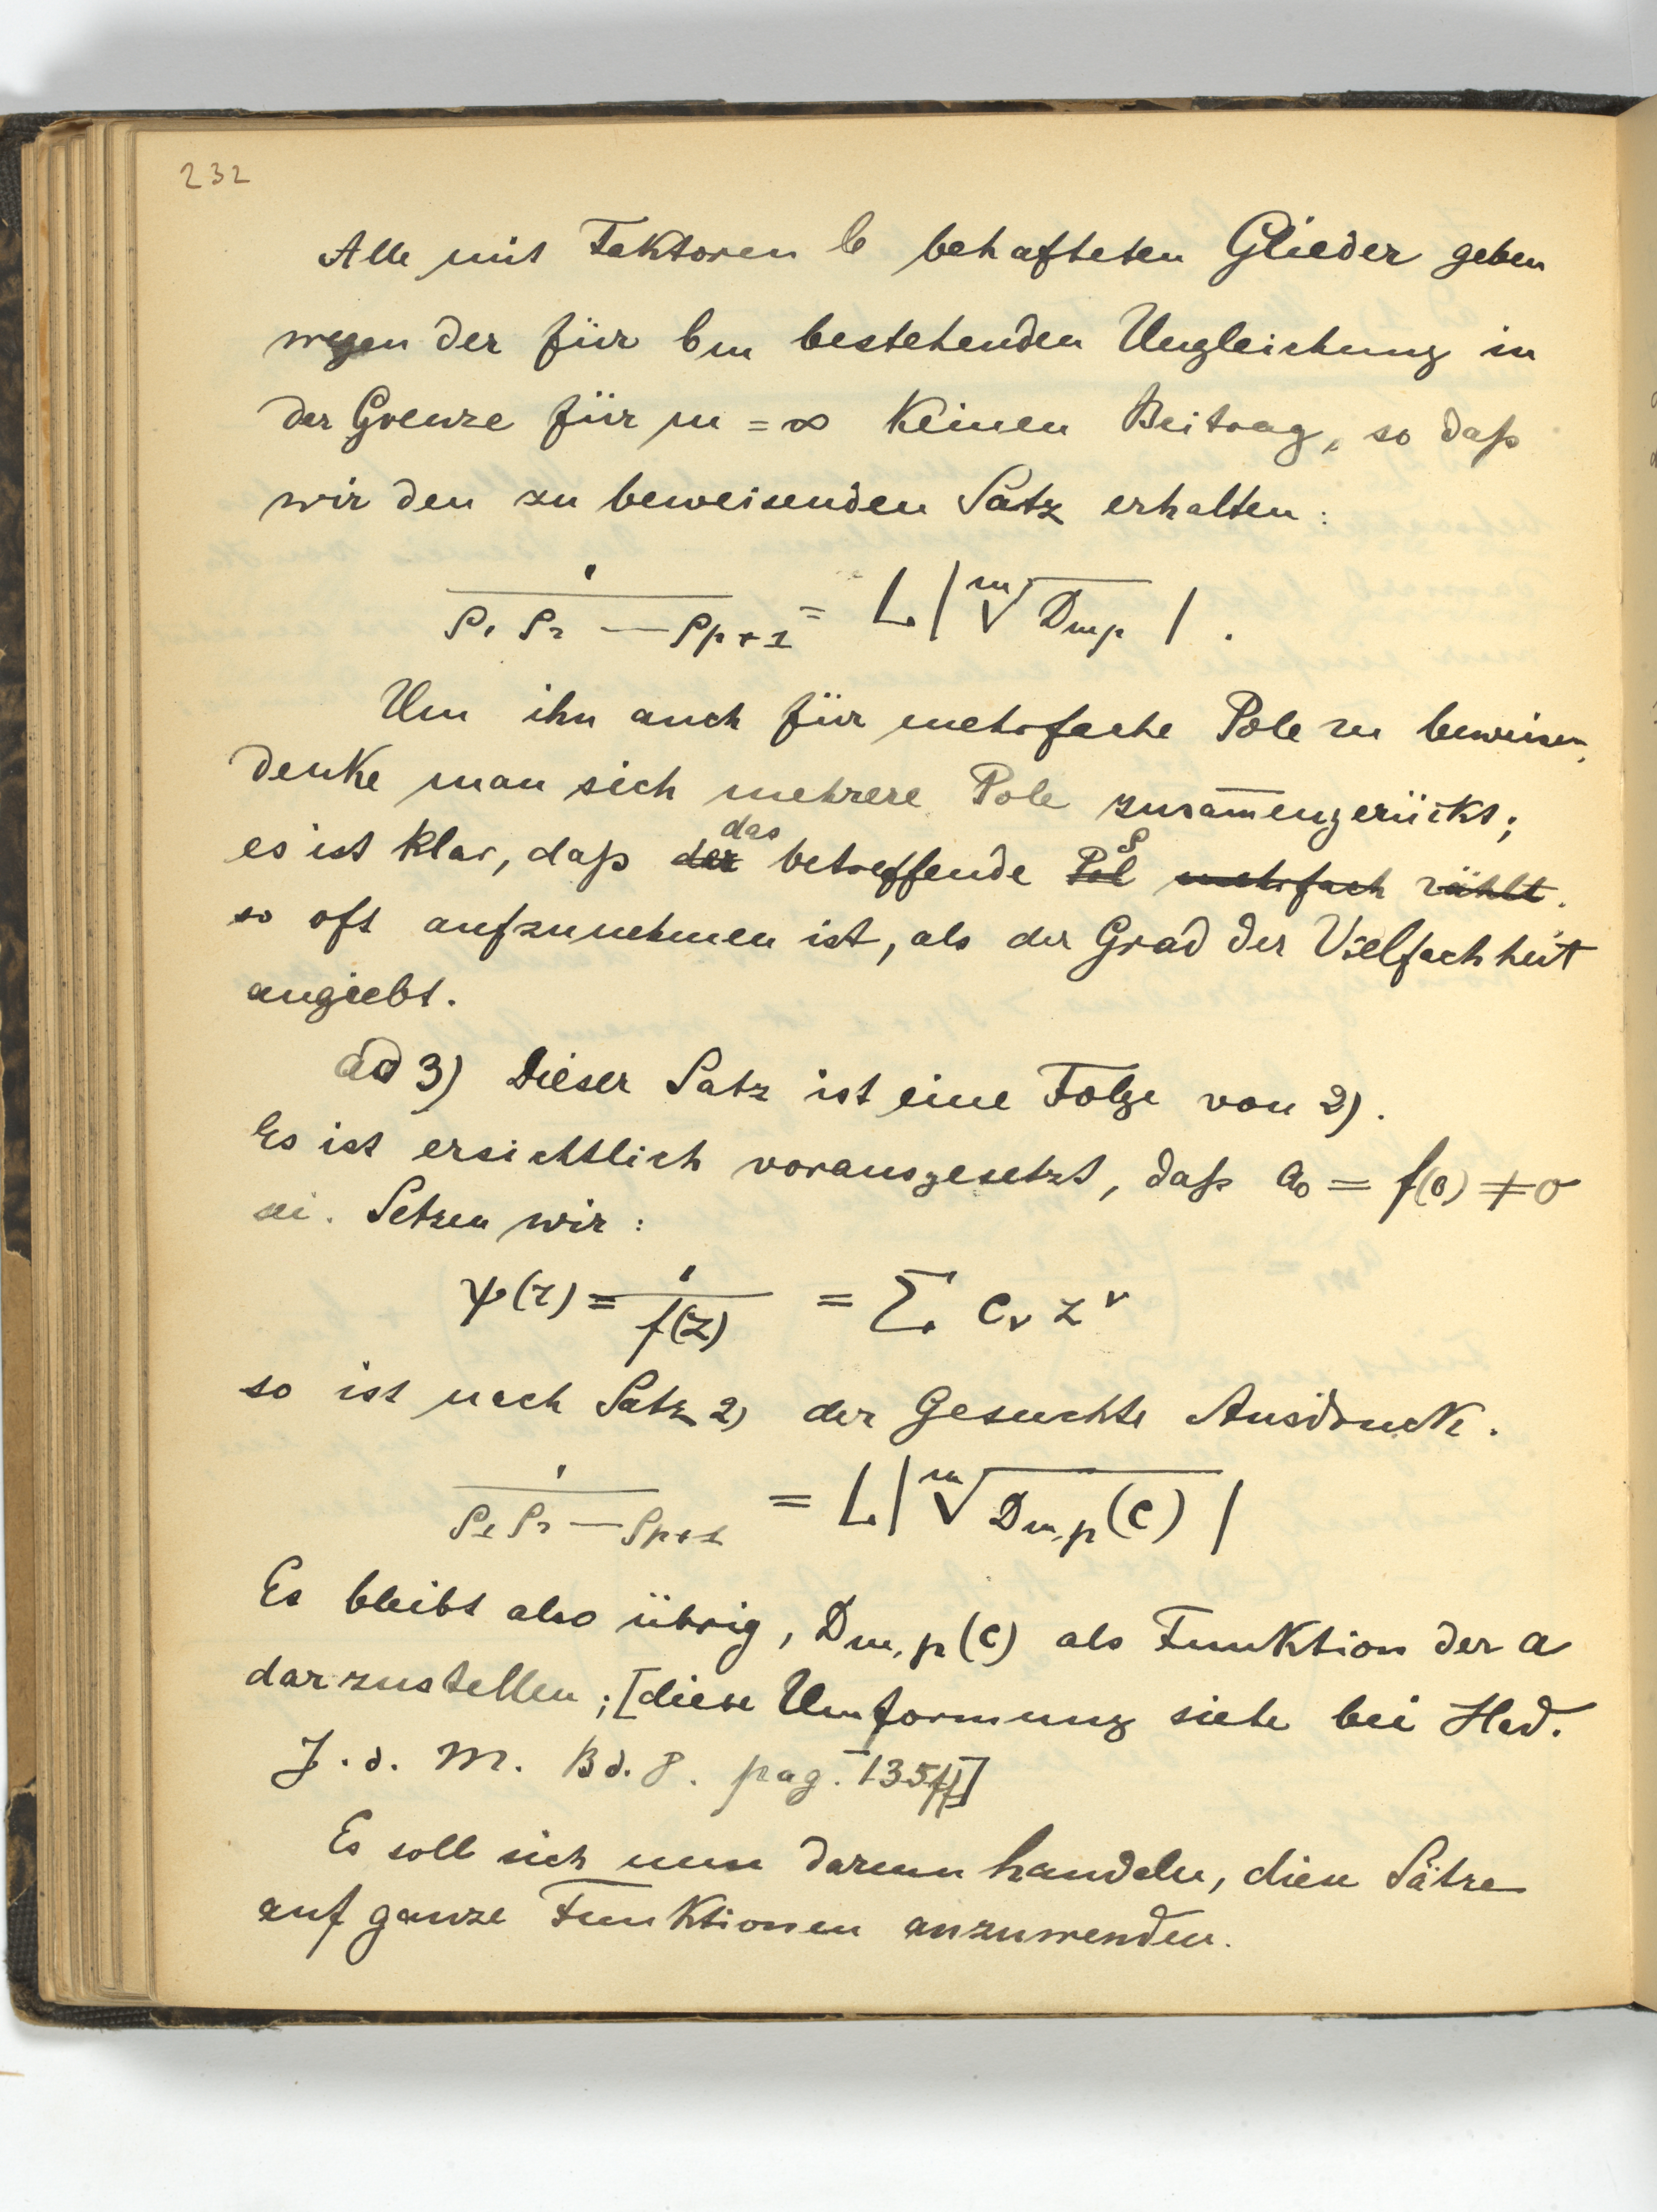 232
Alle mit Faktoren b behafteten Glieder geben
wegen der für bm bestehenden Ungleichung in
der Grenze für m = ∞ keinen Beitrag, so daß
wir den zu beweisenden Satz erhalten:
1/(ρ₁ ρ₂ — ρp+1) = L |ᵐ√Dmp| .
Um ihn auch für mehrfache Pole zu beweisen,
denke man sich mehrere Pole zusam̅engerückt;
es ist klar, daß ~~der~~ das betreffende ~~Pol~~ ρ ~~mehrfach zählt~~.
so oft aufzunehmen ist, als der Grad der Vielfachheit
angiebt.
ad 3) Dieser Satz ist eine Folge von 2).
Es ist ersichtlich vorausgesetzt, daß a₀ = f(0) ≠ 0
sei. Setzen wir:
ψ(z) = 1/f(z) = Σ cᵥ zᵛ
so ist nach Satz 2) der Gesuchte Ausdruck.
1/(ρ₁ ρ₂ — ρp+1) = L |ᵐ√Dm,p(c)|
Es bleibt also übrig, Dm,p(c) als Funktion der a
darzustellen; [diese Umformung siehe bei Had.
J. d. M. Bd. 8. pag. 135ff]
Es soll sich nun darum handeln, diese Sätze
auf ganze Funktionen anzuwenden.